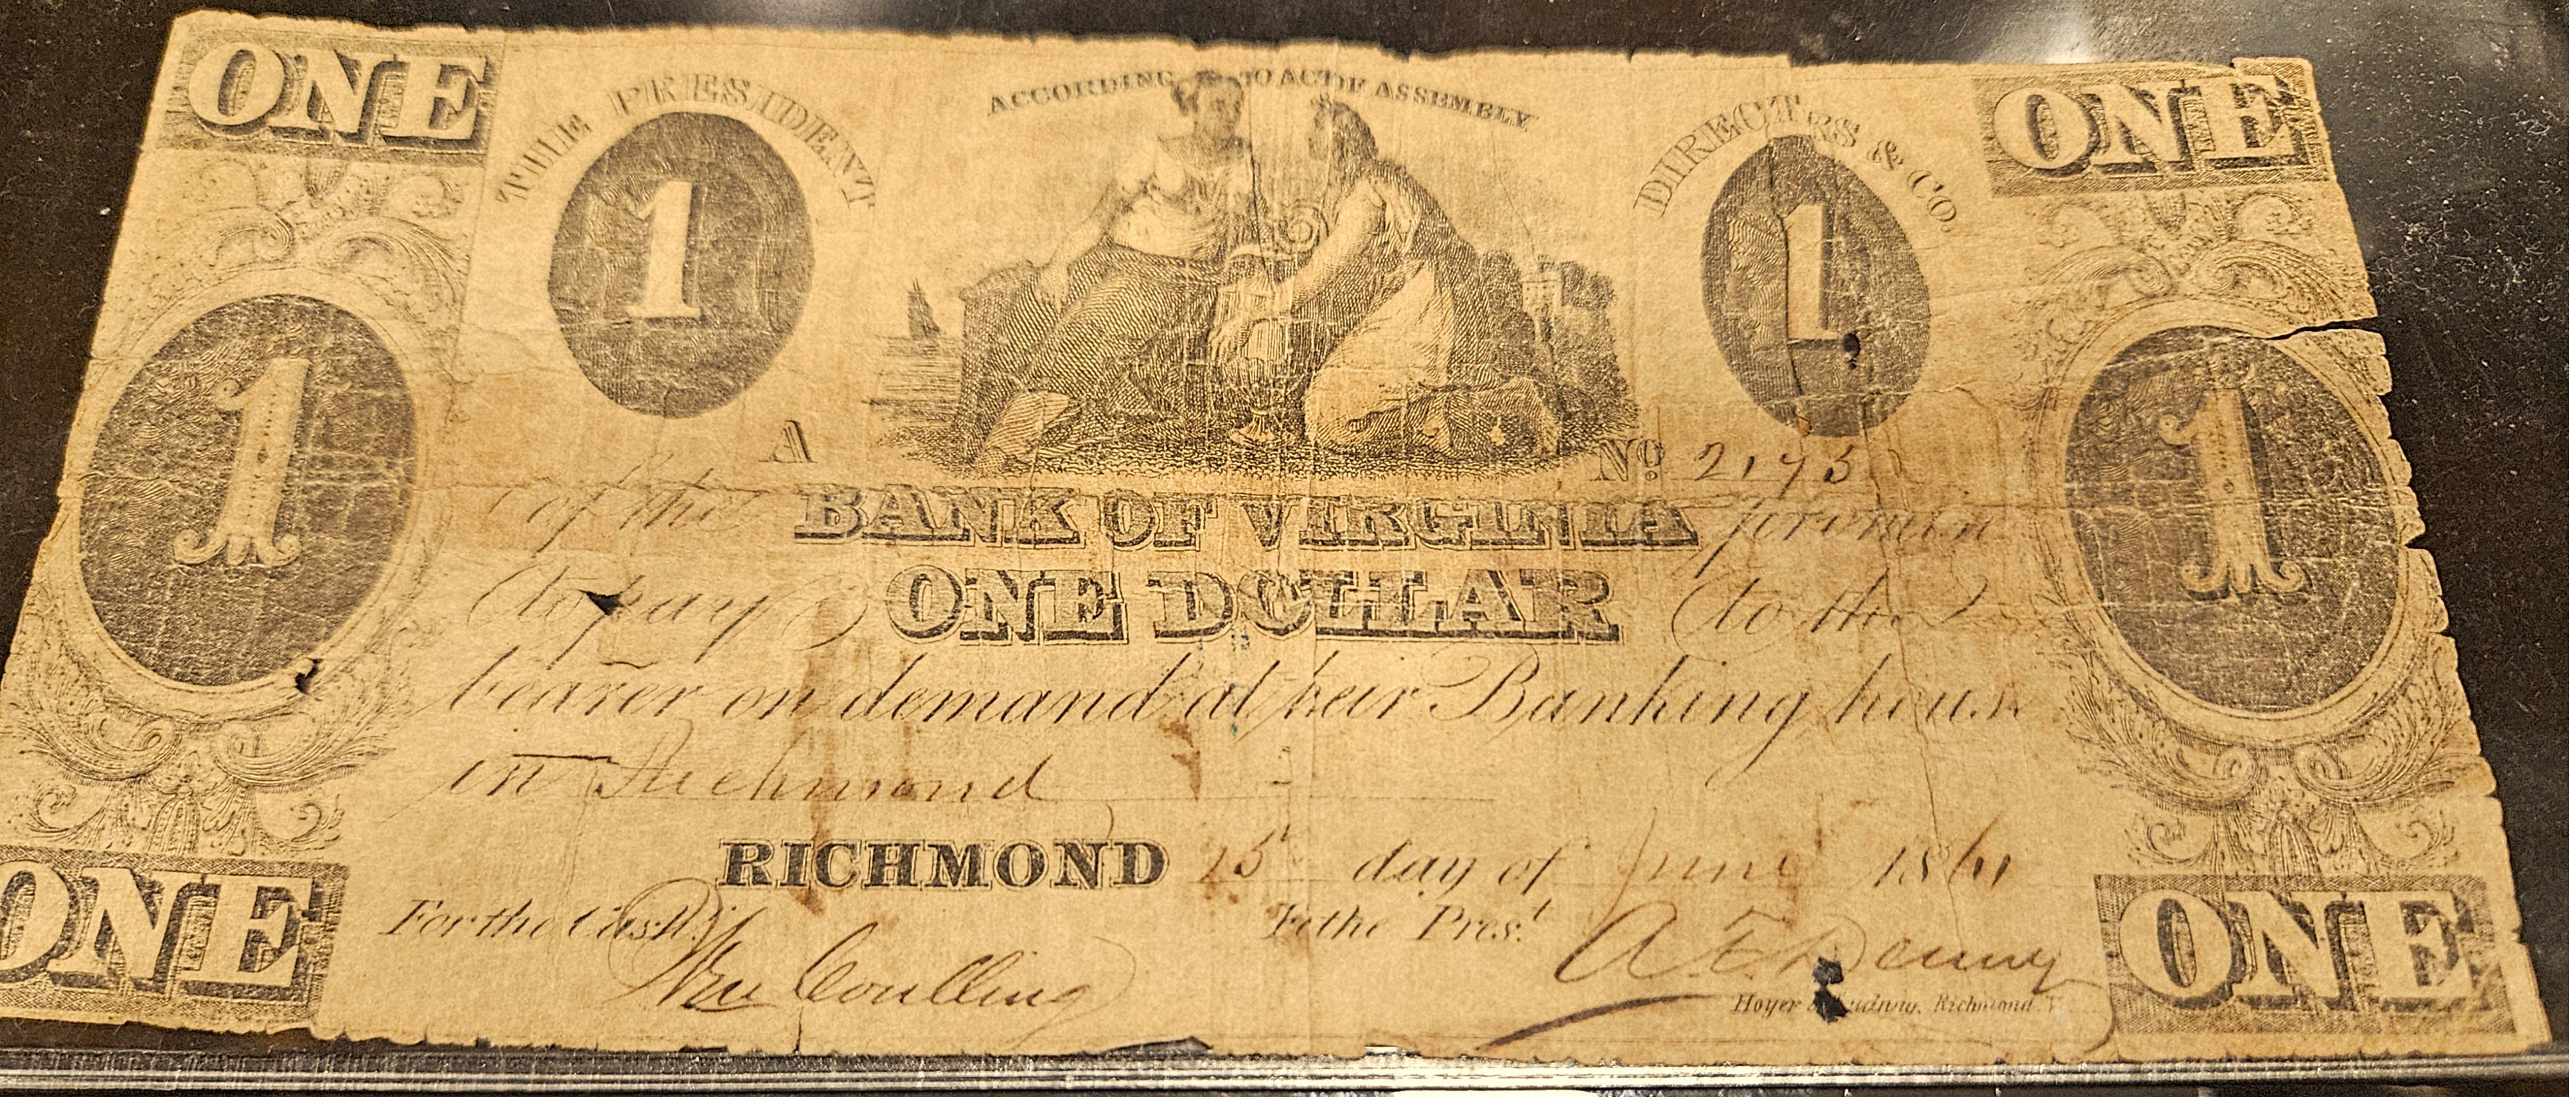 ONE
ONE
ACCORDING TO ACT OF ASSEMBLY
THE PRESIDENT
DIRECTRS & CO.
1
1
1
1
A
No. 2193
of the BANK OF VIRGINIA promise
to pay ONE DOLLAR to the
bearer on demand at their Banking house
in Richmond
RICHMOND 15 day of June 1861
For the Cashr.
F the Prest.
Coulling
A. F. Denny
Hoyer & Ludwig, Richmond V
ONE
ONE